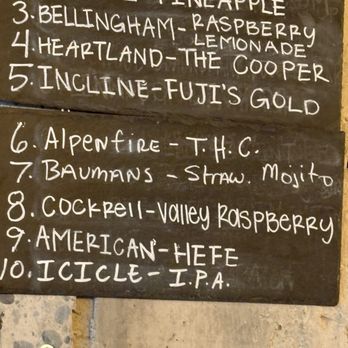 PINEAPPLE
3. BELLINGHAM - RASPBERRY
LEMONADE
4. HEARTLAND - THE COOPER
5. INCLINE - FUJI'S GOLD
6. Alpenfire - T.H.C.
7. BAUMANS - Straw. Mojito
8. COCKRELL - Valley Raspberry
9. AMERICAN - HEFE
10. ICICLE - I.P.A.